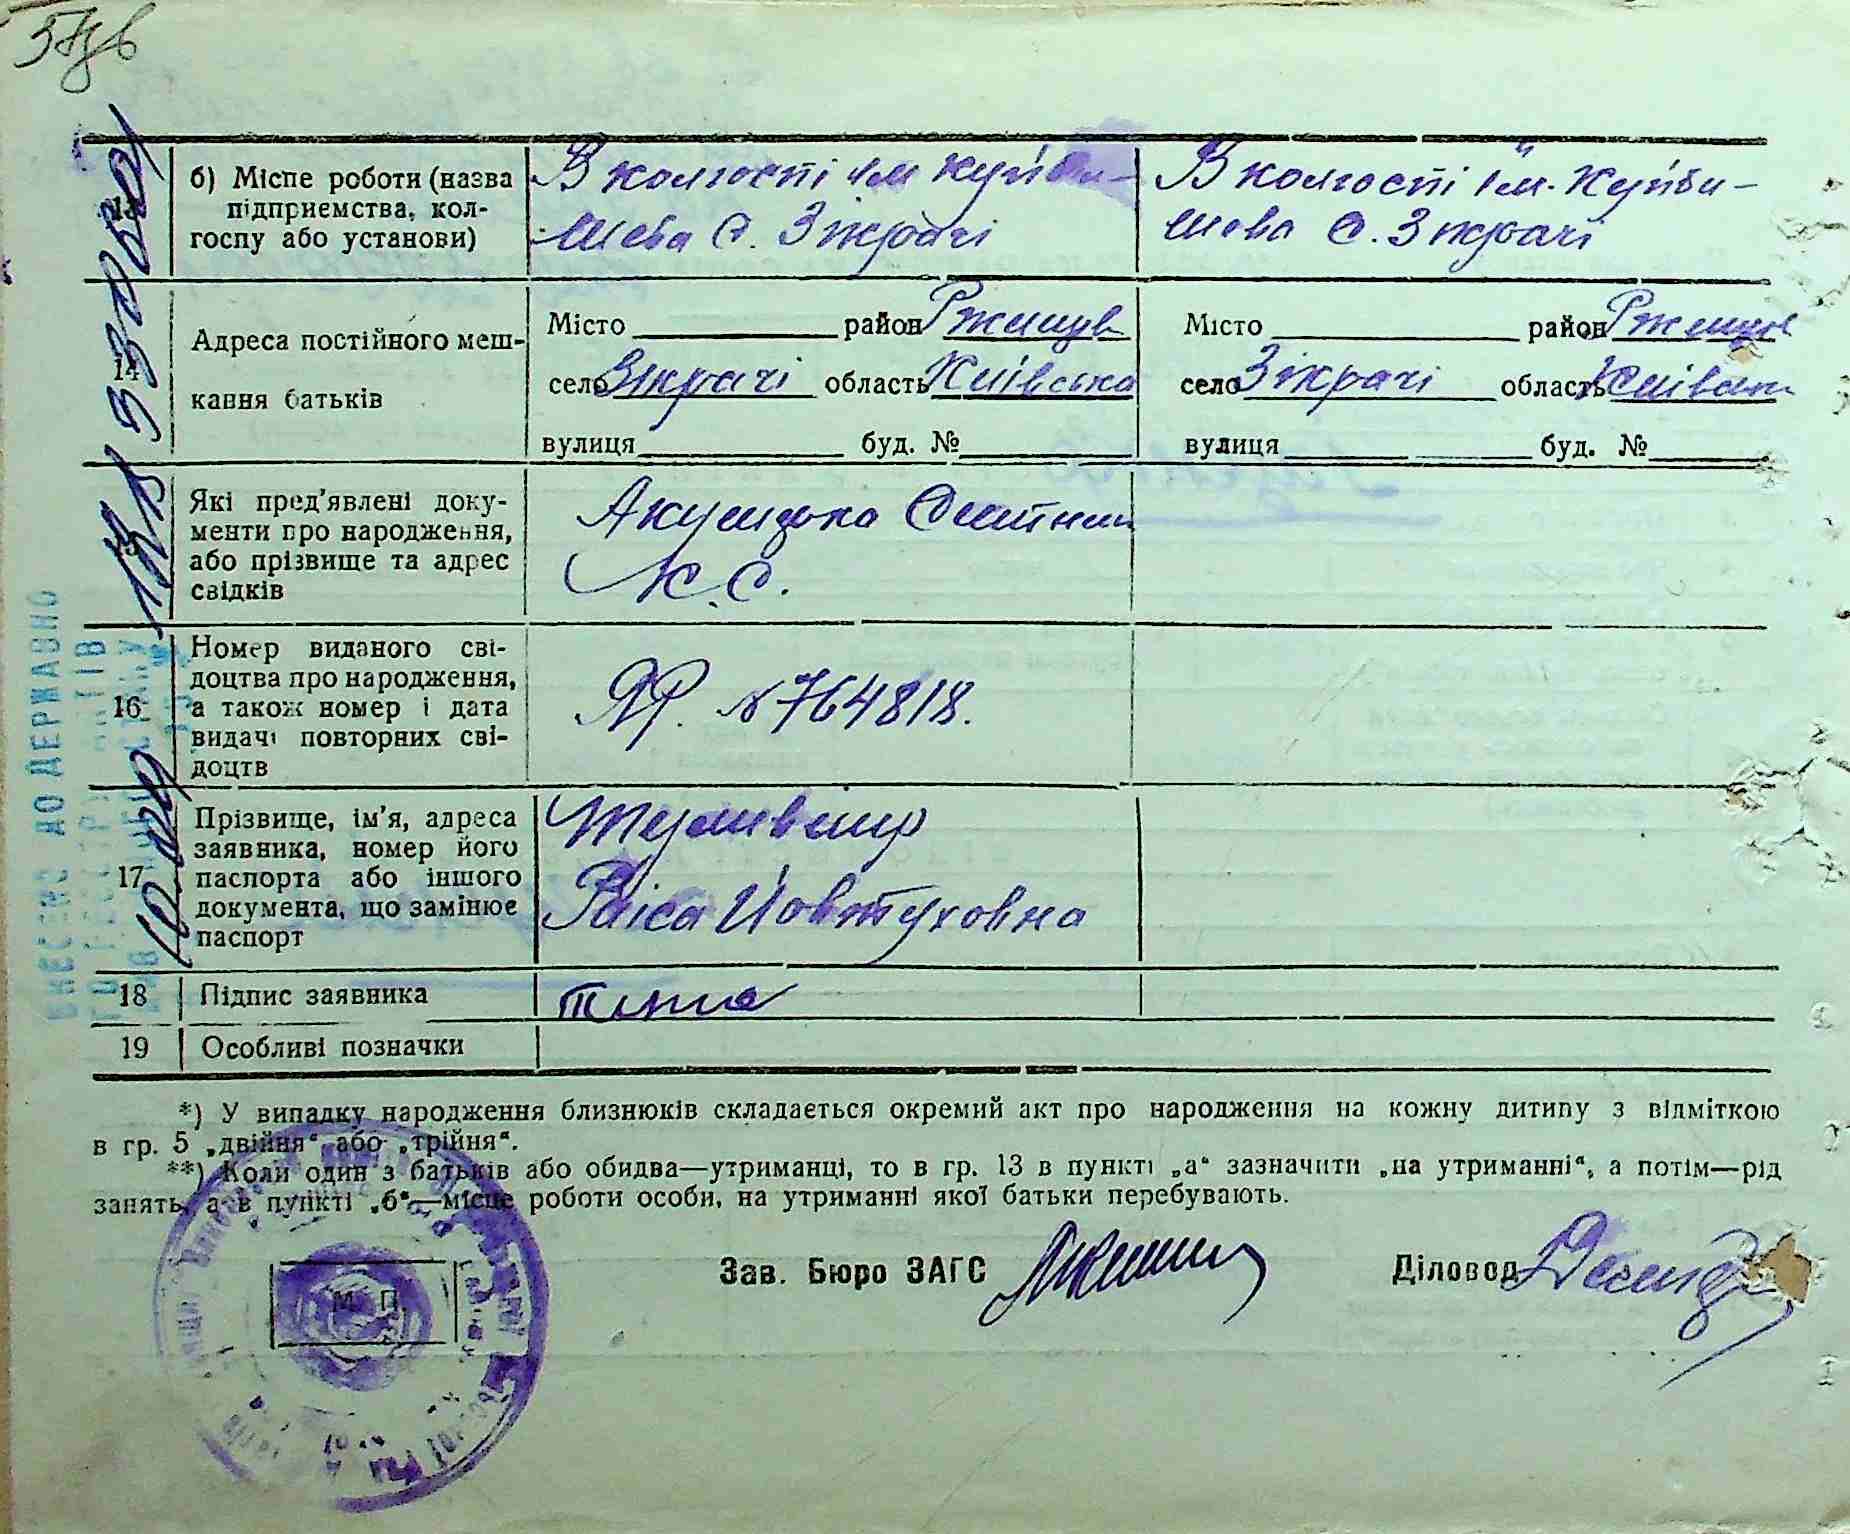 б) Місце роботи (назва
підприємства, кол-
госпу або установи)
В колгоспі ім Куйби-
шева с. Зікрачі
В колгоспі ім. Куйби-
шева с. Зікрачі
14
Адреса постійного меш-
кання батьків
Місто район Ржищів
село Зікрачі область Київська
вулиця буд. №
Місто район Ржищів
село Зікрачі область Київська
вулиця буд. №
15
Які пред'явлені доку-
менти про народження,
або прізвище та адрес
свідків
Акушерка
К. С.
16
Номер виданого сві-
доцтва про народження,
а також номер і дата
видачі повторних сві-
доцтв
ЯР. №764818.
17
Прізвище, ім'я, адреса
заявника, номер його
паспорта або іншого
документа, що замінює
паспорт
Раіса Йовтуховна
18 Підпис заявника
19 Особливі позначки
*) У випадку народження близнюків складається окремий акт про народження на кожну дитину з відміткою
в гр. 5 „двійня“ або „трійня“.
**) Коли один з батьків або обидва—утриманці, то в гр. 13 в пункті „а“ зазначити „на утриманні“, а потім—рід
занять, а в пункті „б“—місце роботи особи, на утриманні якої батьки перебувають.
М. П.
Зав. Бюро ЗАГС Діловод
ВНЕСЕНО ДО ДЕРЖАВНО